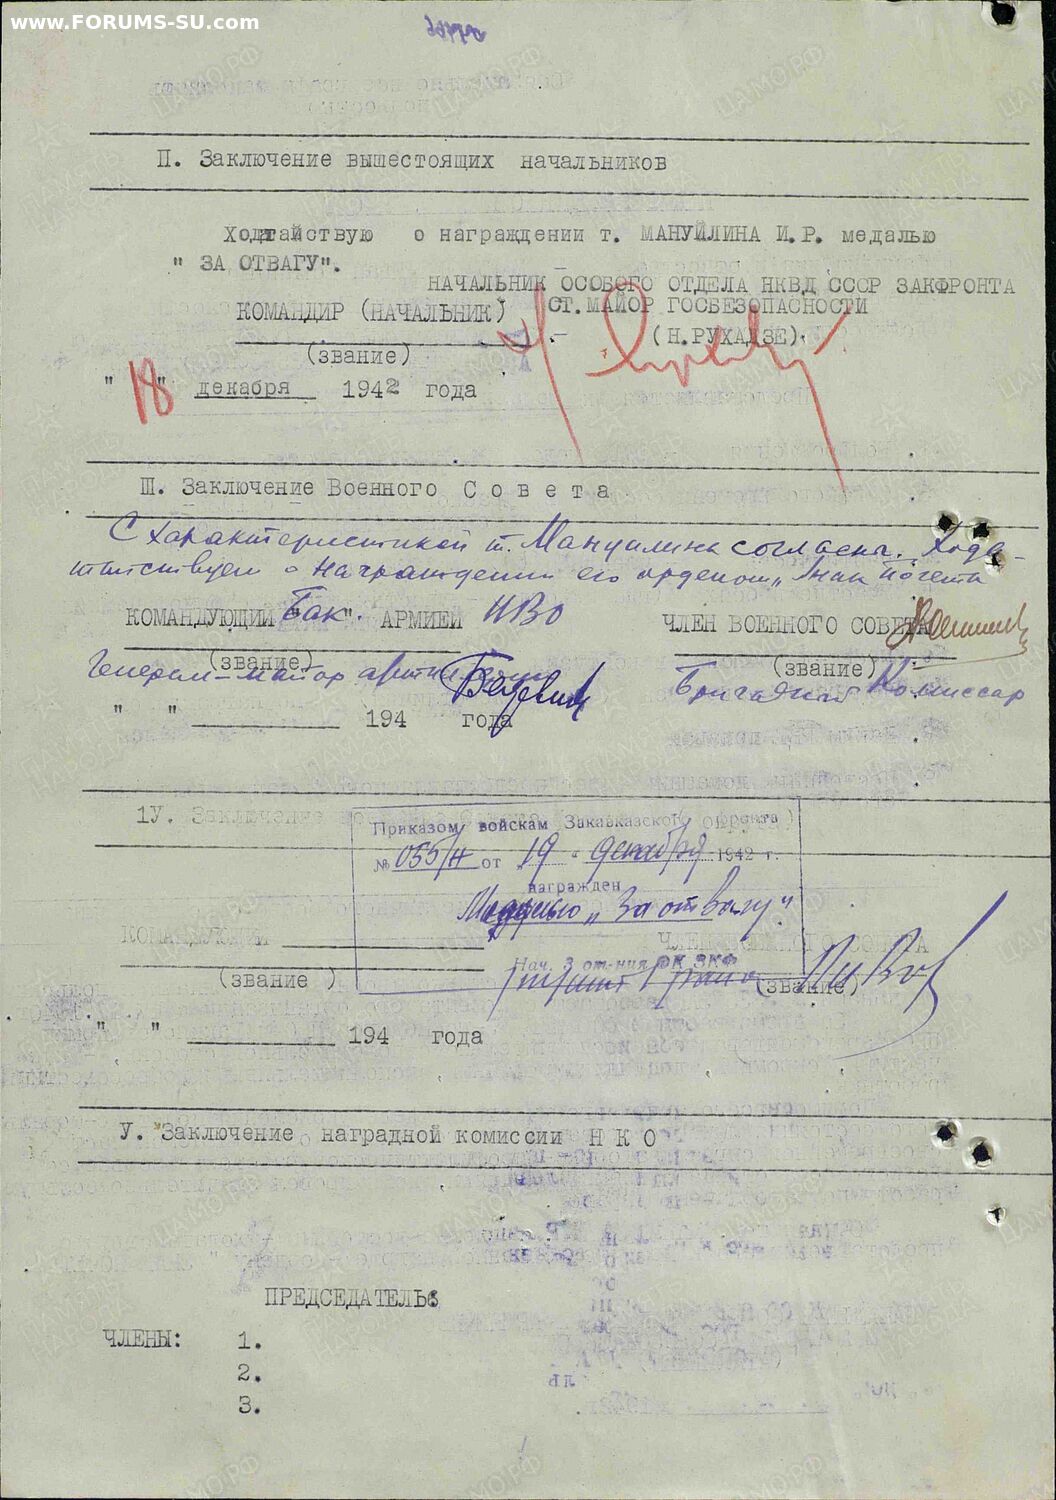 www.FORUMS-SU.com
П. Заключение вышестоящих начальников
Ходатайствую о награждении т. МАНУЙЛИНА И.Р. медалью
" ЗА ОТВАГУ".
НАЧАЛЬНИК ОСОБОГО ОТДЕЛА НКВД СССР ЗАКФРОНТА
КОМАНДИР (НАЧАЛЬНИК) СТ.МАЙОР ГОСБЕЗОПАСНОСТИ
(Н.РУХАДЗЕ).
(звание)
" 18 " декабря 1942 года
Ш. Заключение Военного С о в е т а
С характеристикой т. Мануилина согласены. Хода-
тайствуем о награждении его орденом „Знак Почета
КОМАНДУЮЩИЙ "Бак". АРМИЕЙ ПВО ЧЛЕН ВОЕННОГО СОВЕТА
(звание) (звание)
Генерал-майор артиллерии Бригадный Комиссар
" " 194 года
1У. Заключение
Приказом войскам Закавказского фронта
№ 055/Н от „19" декабря 1942 г.
награжден
Медалью „За отвагу"
КОМАНДУЮЩИЙ ЧЛЕН ВОЕННОГО СОВЕТА
Нач. 3 от-ния ОК ЗКФ
(звание ) (звание)
" " 194 года
У. Заключение наградной комиссии Н К О
ПРЕДСЕДАТЕЛЬ:
ЧЛЕНЫ: 1.
2.
3.